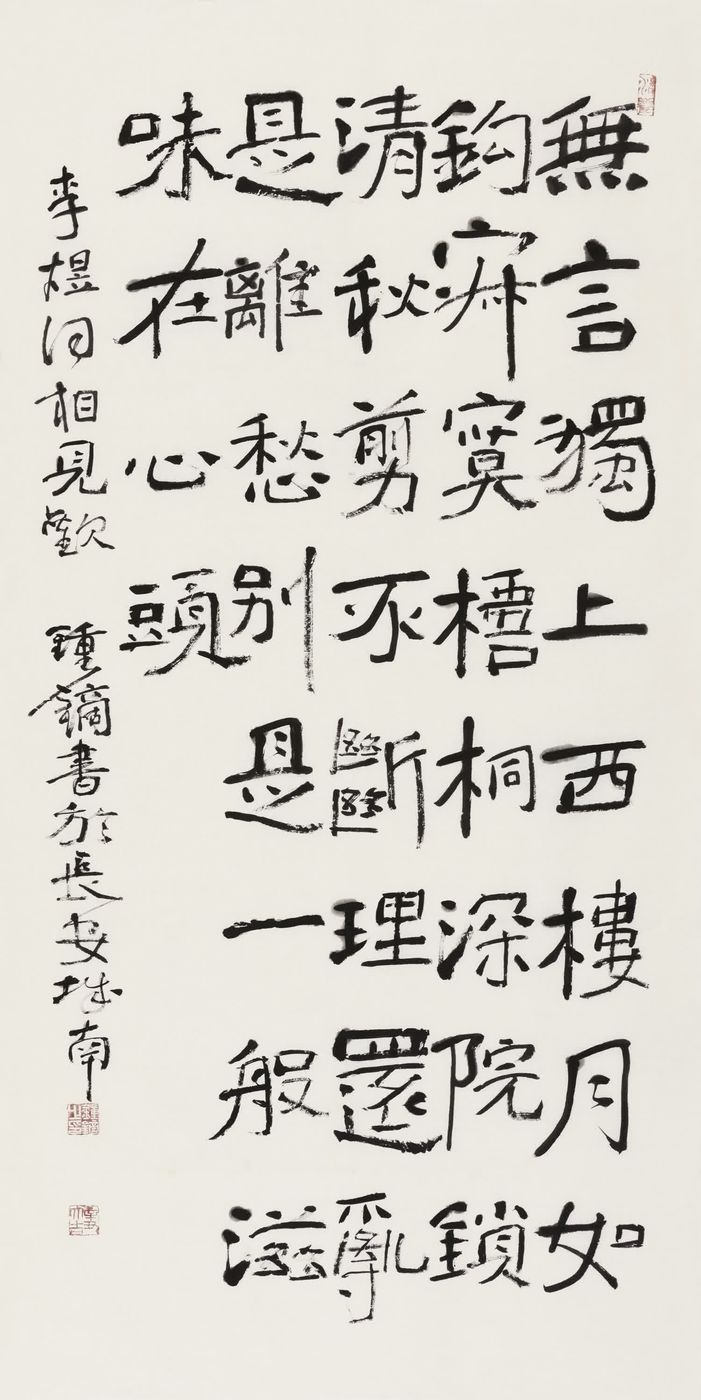 無言獨上西樓月如
鈎寂寞梧桐深院鎖
清秋剪不斷理還亂
是離愁别是一般滋
味在心頭
李煜词相見歡 鍾鏑書於長安城南